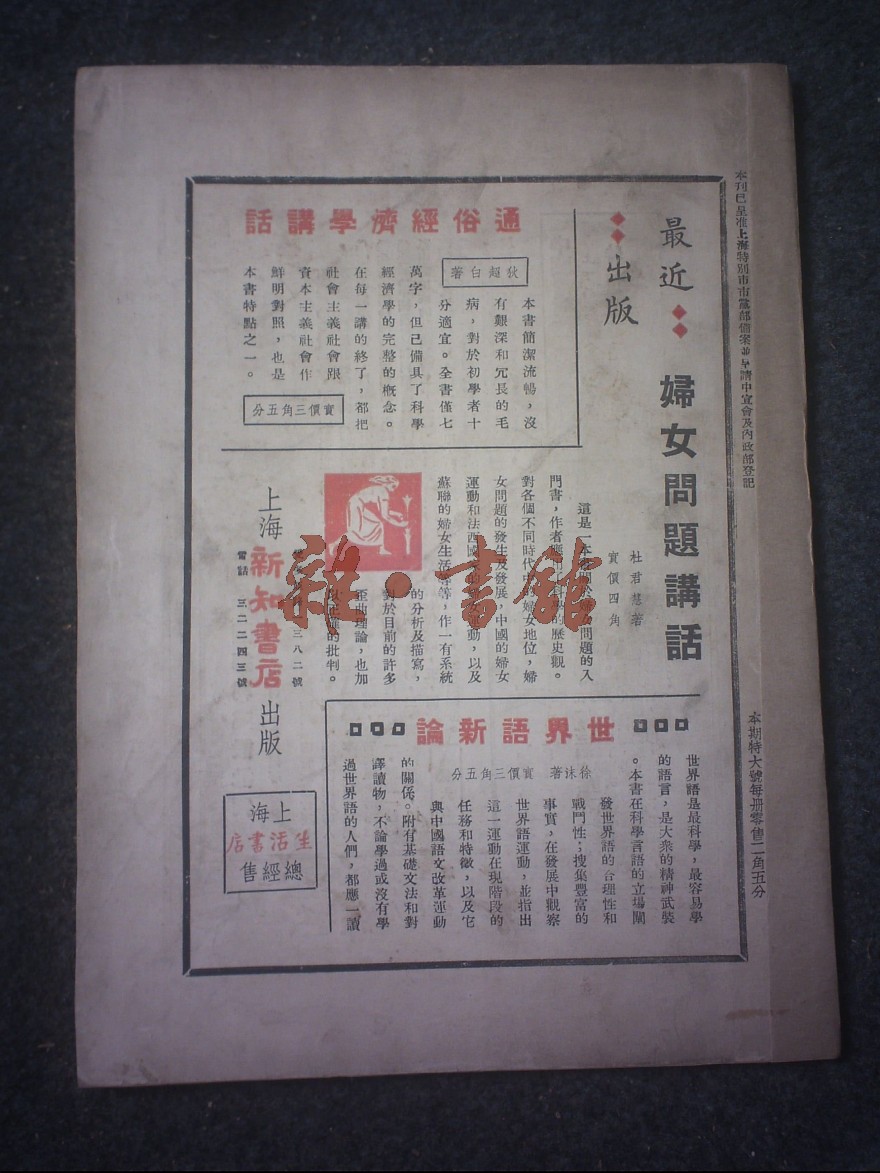 本刊已呈准上海特別市市黨部備案並呈請中宣會及內政部登記
本期特大號每册零售二角五分
最近
出版
婦女問題講話
杜君慧著
實價四角
這是一本
問題的入
門書，作者
的歷史觀。
對各個不同時代中的婦女地位，婦
女問題的發生及發展，中國的婦女
運動和法西國
運動，以及
蘇聯的婦女生活等等，作一有系統
的分析及描寫，
對於目前的許多
歪曲理論，也加
的批判。
通俗經濟學講話
狄超白著
本書簡潔流暢，沒
有艱深和冗長的毛
病，對於初學者十
分適宜。全書僅七
萬字，但已備具了科學
經濟學的完整的概念。
在每一講的終了，都把
社會主義社會跟
資本主義社會作
鮮明對照，也是
本書特點之一。
實價三角五分
世界語新論
徐沫著 實價三角五分
世界語是最科學，最容易學
的語言，是大衆的精神武裝
。本書在科學言語的立場闡
發世界語的合理性和
戰鬥性；搜集豐富的
事實，在發展中觀察
世界語運動，並指出
這一運動在現階段的
任務和特徵，以及它
與中國語文改革運動
的關係。附有基礎文法和對
譯讀物，不論學過或沒有學
過世界語的人們，都應一讀
上海新知書店出版
三八二號
電話 三二二四三號
上海
生活書店
總經售
雜·書館